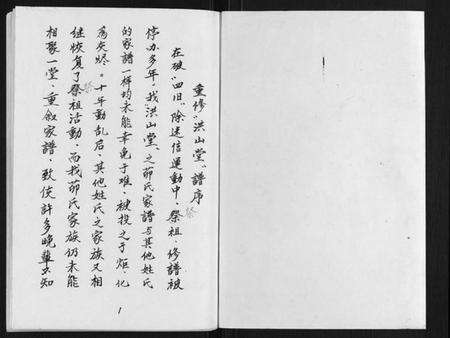 重修“洪山堂”譜序
在破“四旧”除迷信運動中，祭祖、修譜被
停办多年，我“洪山堂”之茆氏家譜与其他姓氏
的家譜一样均未能幸免于难，被投之于炬，化
爲灰烬。十年動乱后，其他姓氏之家族又相
继恢复了祭祖活動，而我茆氏家族仍未能
相聚一堂，重叙家譜，致使許多晚輩不知
1